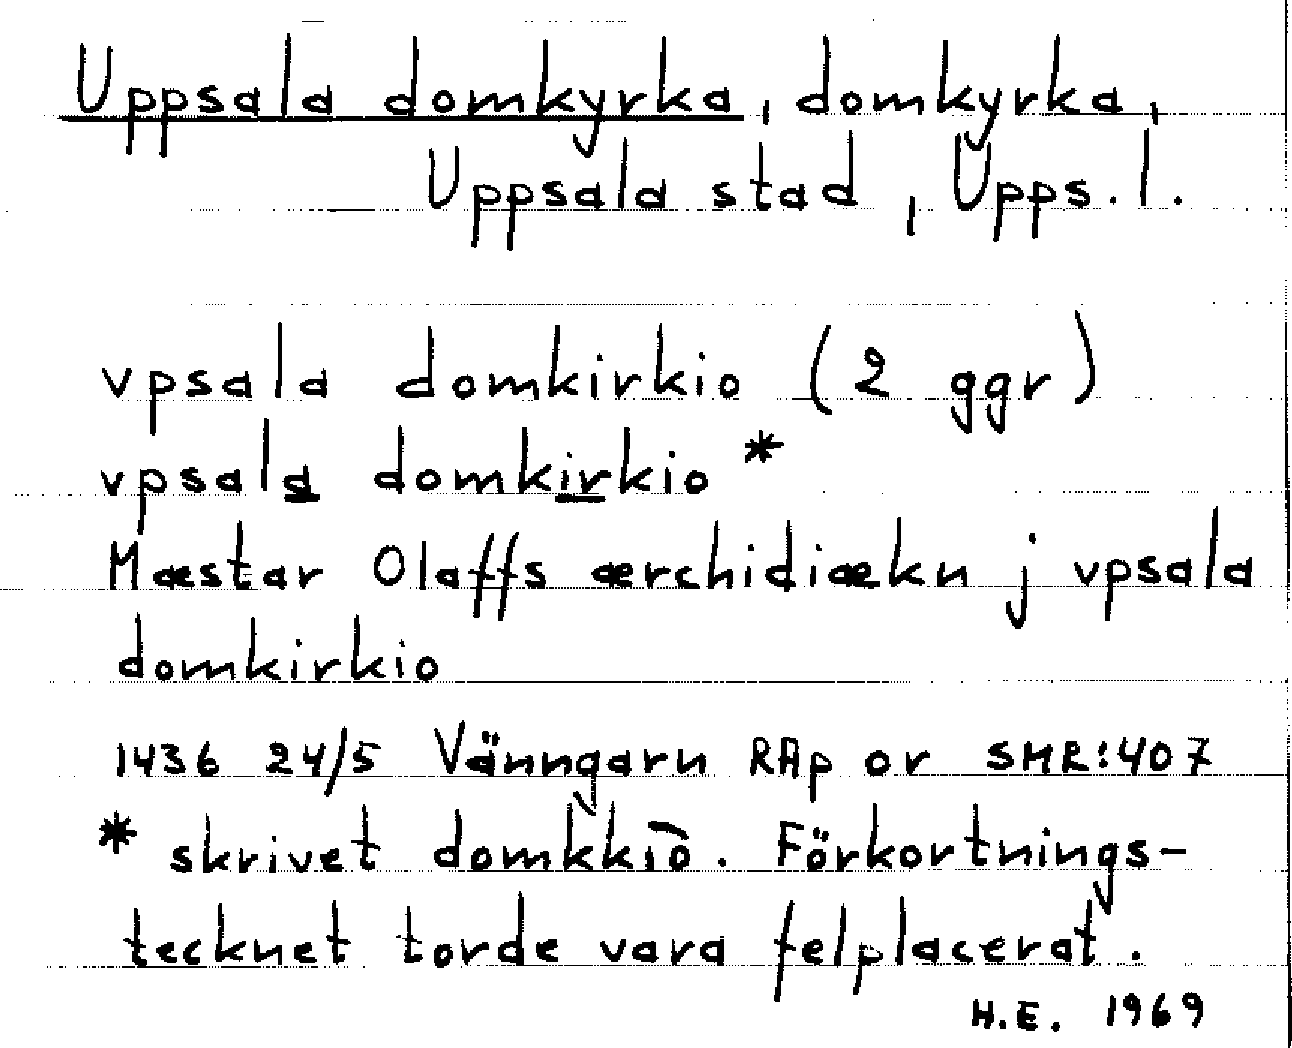 Uppsala domkyrka, domkyrka,
Uppsala stad, Upps. l.
vpsala domkirkio (2 ggr)
vpsala domkirkio *
Mæstar Olaffs ærchidiækn j vpsala
domkirkio
1436 24/5 Vänngarn RAp or SMR:407
* skrivet domkkıō. Förkortnings-
tecknet torde vara felplacerat.
H.E. 1969